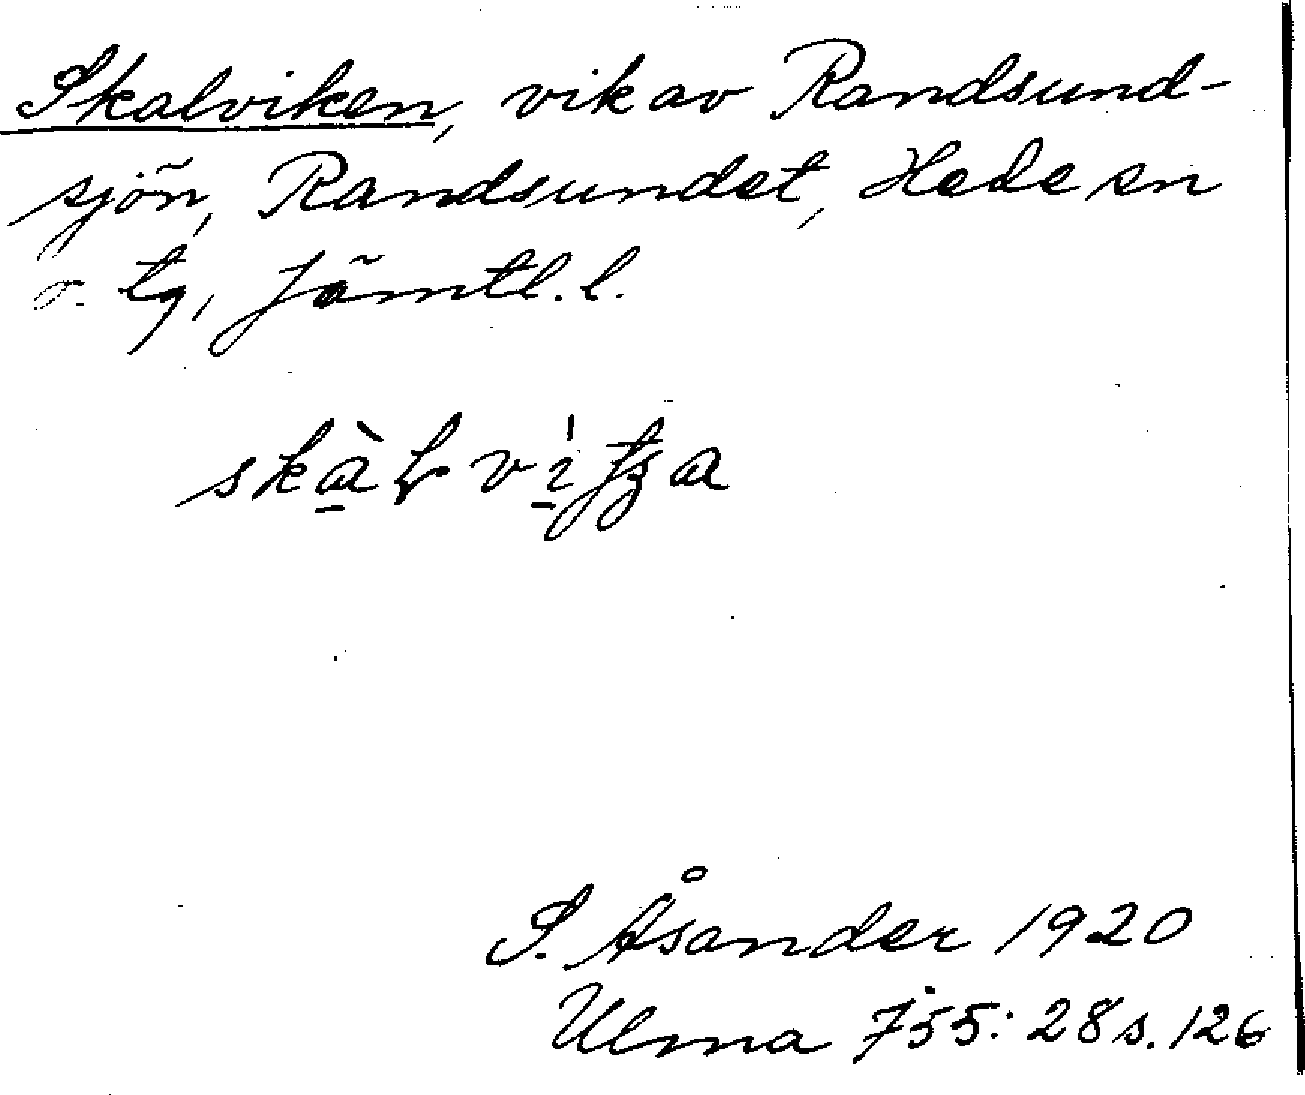 Skalviken, vik av Randsund-
sjön, Randsundet, Hede sn
o. tg, Jämtl. l.
S. Åsander 1920
Ulma 755: 28 s. 126